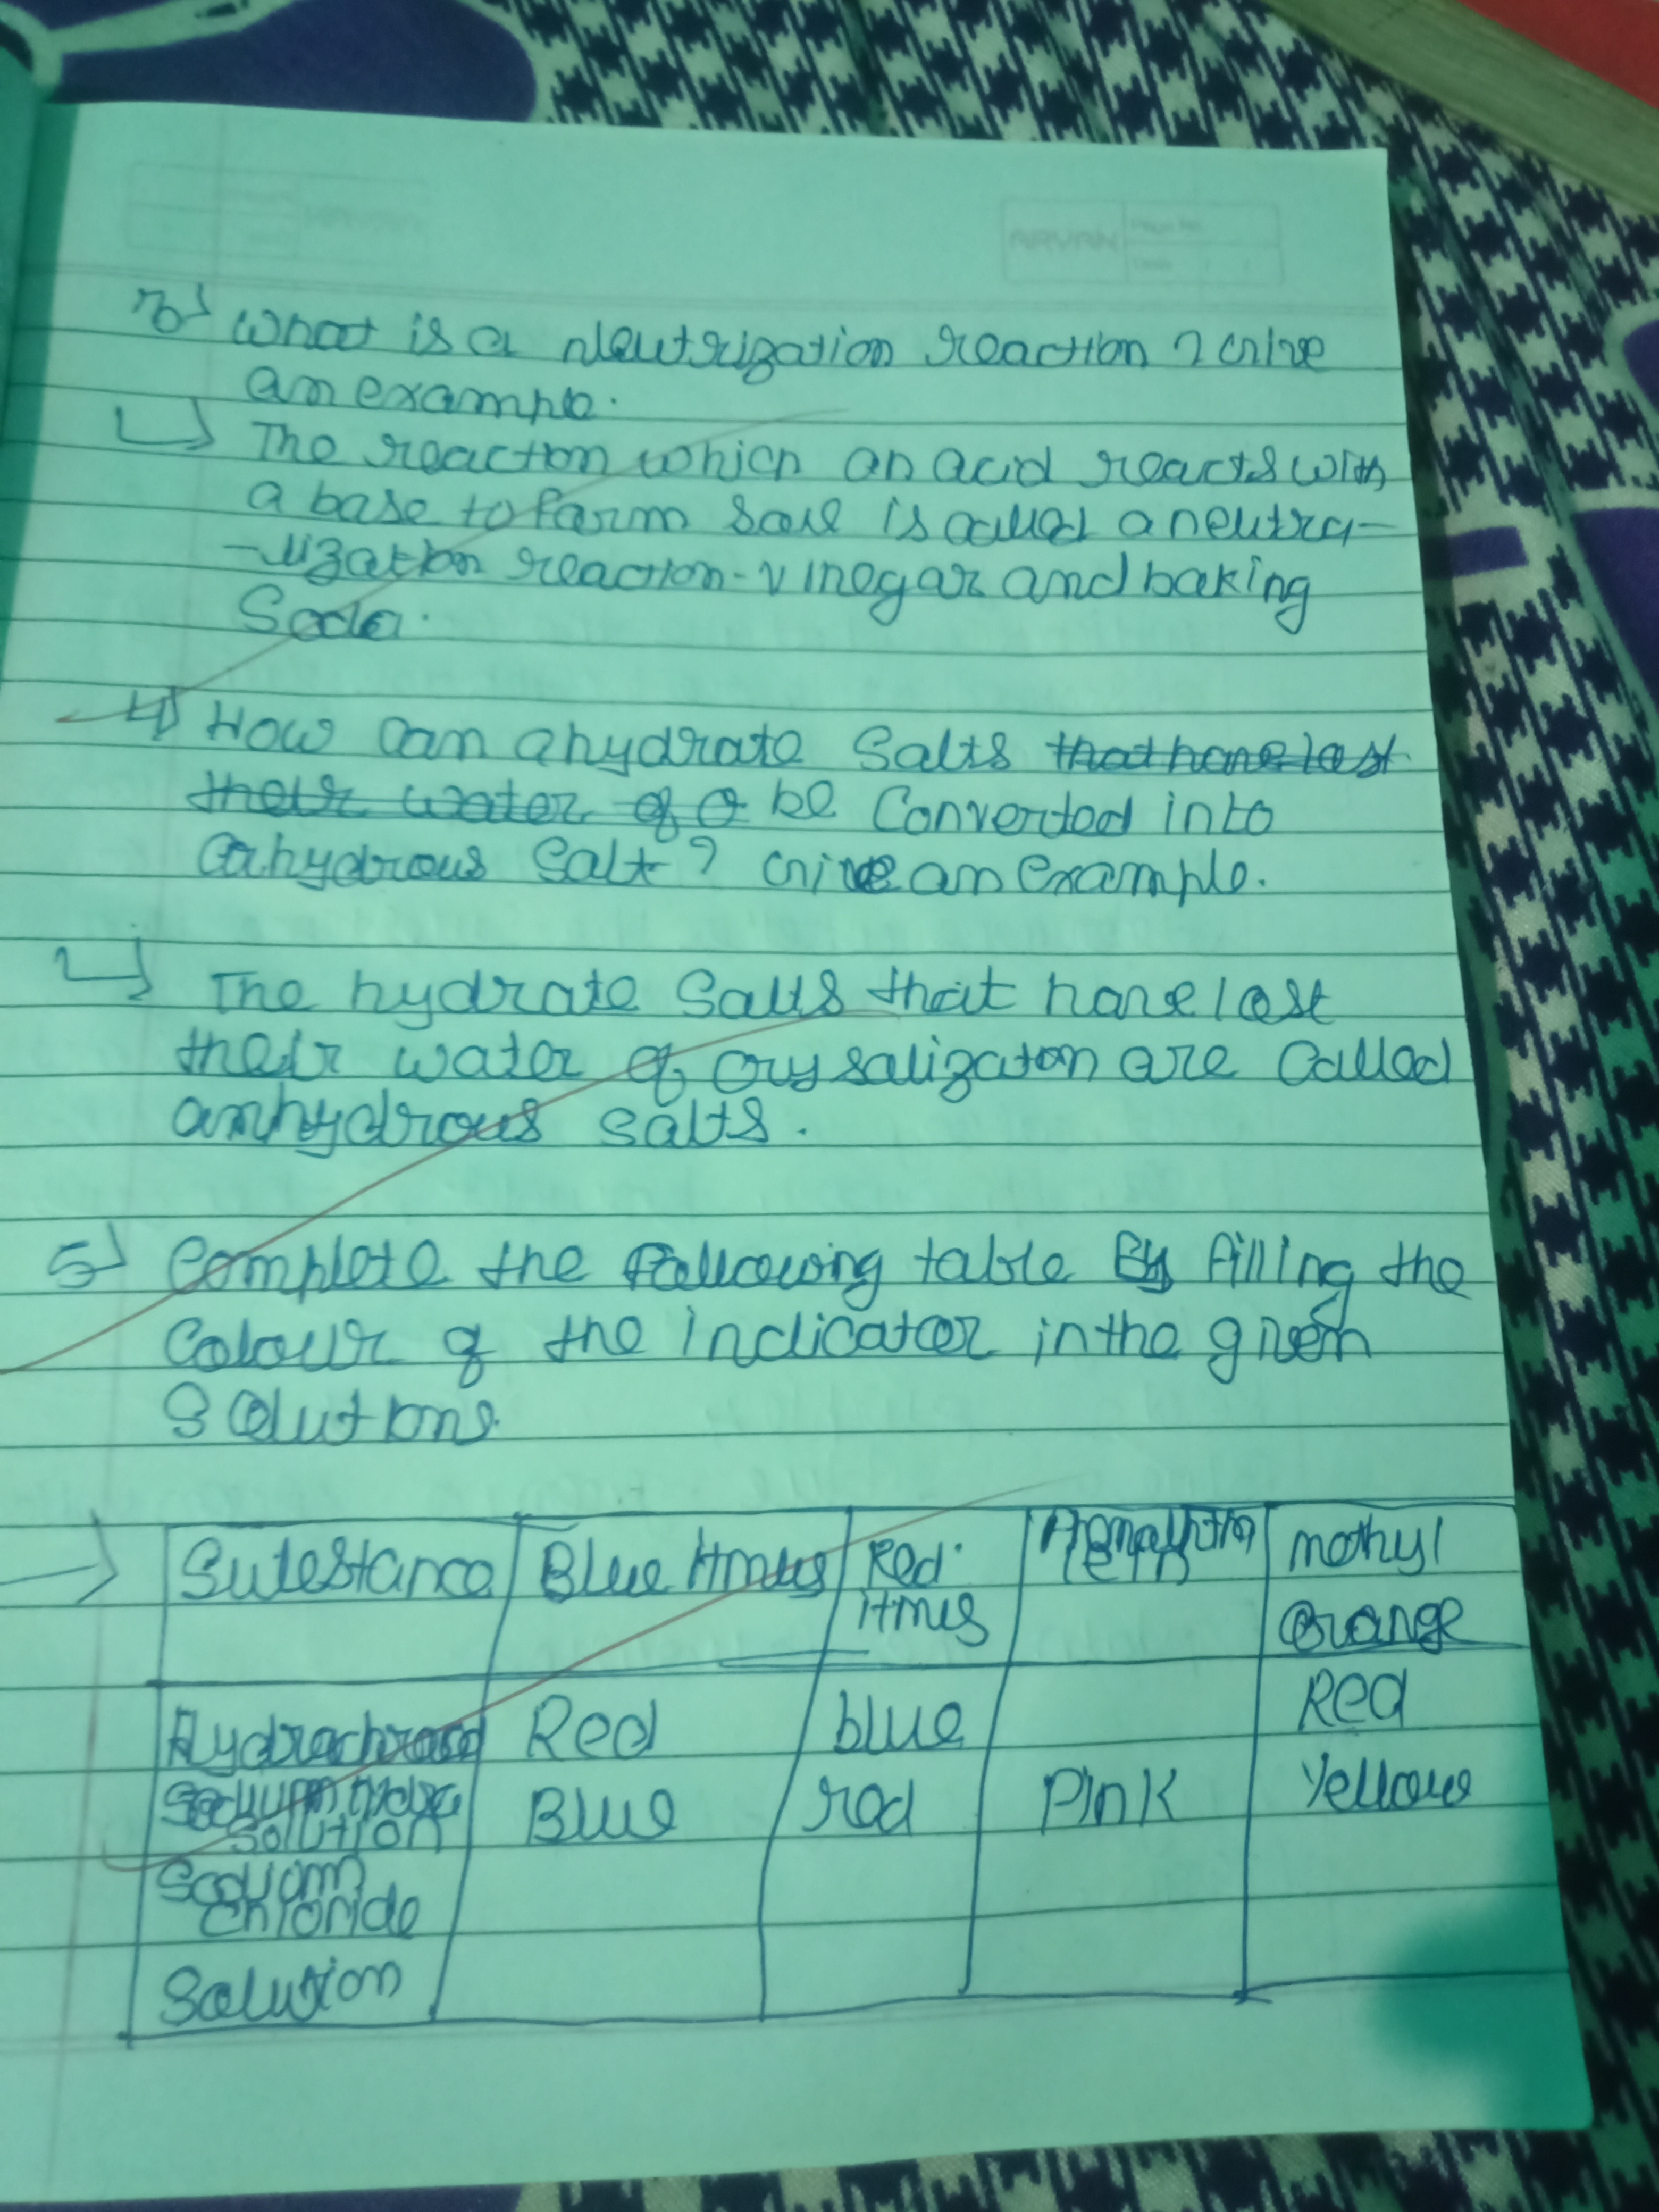 3) What is a Neutrization reaction ? Give
an example.
The reaction which an acid reacts with
a base to form salt is called a neutra-
-lization reaction - vinegar and baking
Soda.
4) How can ahydrate Salts that have lost
their water of o be Converted into
anhydrous Salt? Give an example.
The hydrate Salts that have lost
their water of crysalization are called
anhydrous salts.
5) Complete the following table By filling the
Colour of the indicator in the given
Solutions.
Substance Blue litmus Red litmus methyl orange
Red blue Red
Solution Blue red Pink Yellow
Sodium
Chloride
Solution